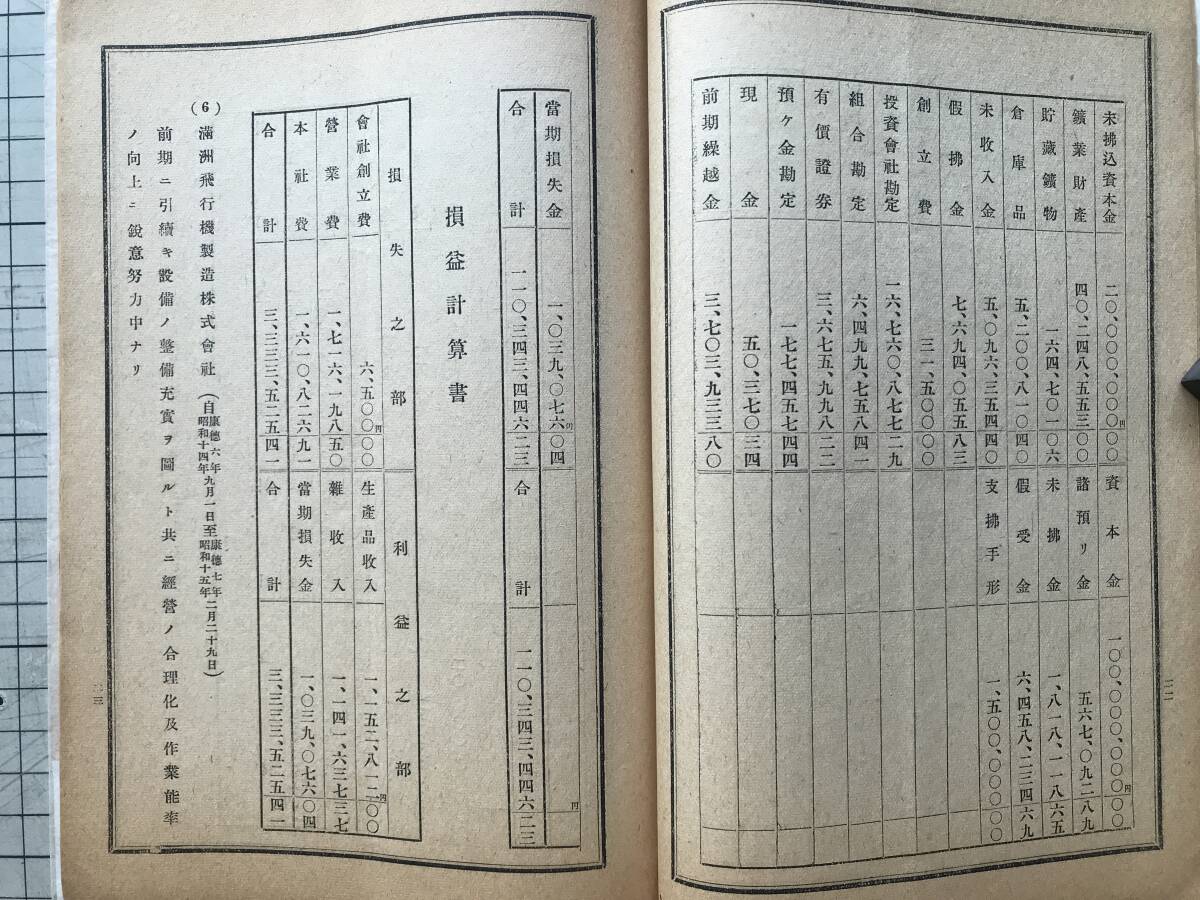 未拂込資本金 二〇、〇〇〇、〇〇〇円〇〇 資本金 一〇〇、〇〇〇、〇〇〇円〇〇
鑛業財產 四〇、二四八、五五三〇〇 諸預リ金 五六七、〇九二八九
貯藏鑛物 一六四、七〇一〇六 未拂金 一、八一八、一一八六五
倉庫品 五、二〇〇、八一〇四〇 假受金 六、四五八、二三四六九
未收入金 五、〇九六、三五四四〇 支拂手形 一、五〇〇、〇〇〇〇〇
假拂金 七、六九四、〇五五八三
創立費 三一、五〇〇〇〇
投資會社勘定 一六、七六〇、八七七二九
組合勘定 六、四九九、七五八四一
有價證券 三、六七五、九九八二二
預ケ金勘定 一七七、四五七四四
現金 五〇、三七〇三四
前期繰越金 三、七〇三、九三三八〇
二二
當期損失金 一、〇三九、〇七六円〇四 円
合計 一一〇、三四三、四四六二三 合計 一一〇、三四三、四四六二三
損益計算書
損失之部 利益之部
會社創立費 六、五〇〇円〇〇 生產品收入 一、一五二、八一二円〇〇
營業費 一、七一六、一九八五〇 雜收入 一、一四一、六三七三七
本社費 一、六一〇、八二六九一 當期損失金 一、〇三九、〇七六〇四
合計 三、三三三、五二五四一 合計 三、三三三、五二五四一
(6) 滿洲飛行機製造株式會社 (自康德六年昭和十四年九月一日至康德七年昭和十五年二月二十九日)
前期ニ引續キ設備ノ整備充實ヲ圖ルト共ニ經營ノ合理化及作業能率
ノ向上ニ銳意努力中ナリ
二三